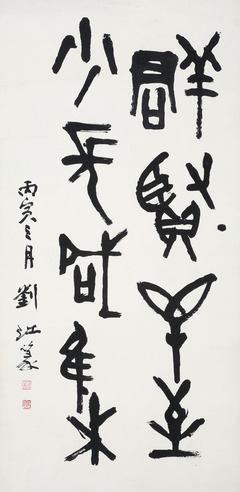 群賢畢至
少長咸集
丙寅三月劉江篆